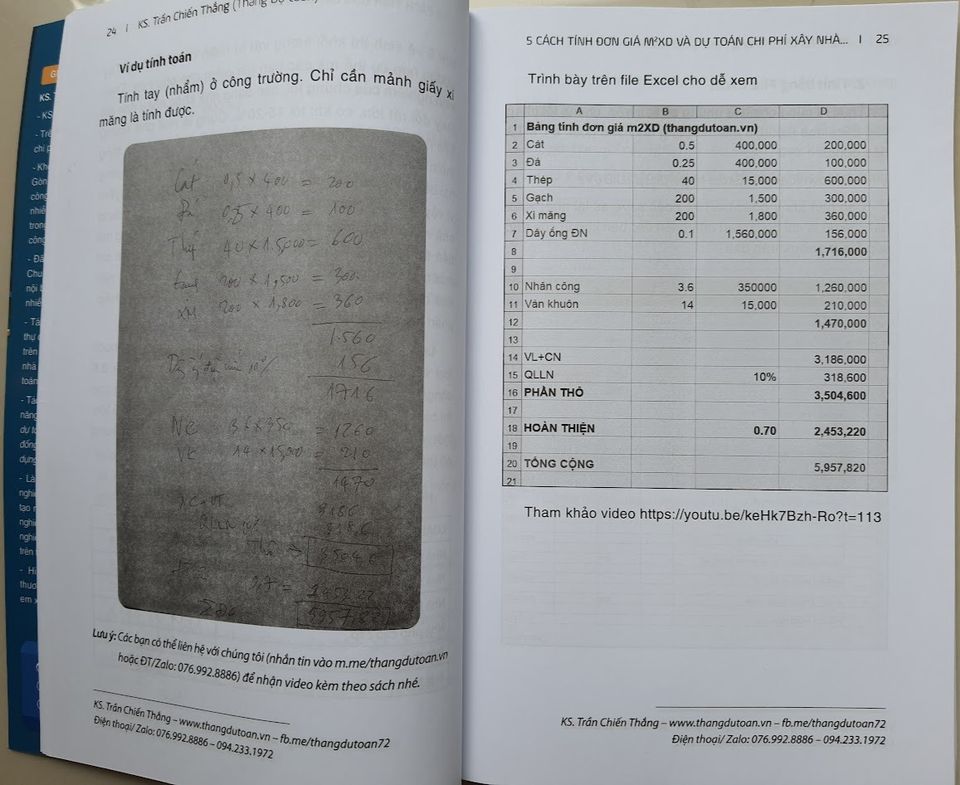 24 I KS. Trần Chiến Thắng
Ví dụ tính toán
Tính tay (nhẩm) ở công trường. Chỉ cần mảnh giấy xi
măng là tính được.
Cát 0,5 x 400 = 200
Đá 0,25 x 400 = 100
Thép 40 x 15,000 = 600
200 x 1,500 = 300
xm 200 x 1,800 = 360
1.560
156
1716
NC 3,6 x 350 = 1260
VK 14 x 15,000 = 210
1470
3186
QLLN 10%
Lưu ý: Các bạn có thể liên hệ với chúng tôi (nhắn tin vào m.me/thangdutoan.vn
hoặc ĐT/Zalo: 076.992.8886) để nhận video kèm theo sách nhé.
KS. Trần Chiến Thắng – www.thangdutoan.vn – fb.me/thangdutoan72
Điện thoại/ Zalo: 076.992.8886 – 094.233.1972
5 CÁCH TÍNH ĐƠN GIÁ M²XD VÀ DỰ TOÁN CHI PHÍ XÂY NHÀ... I 25
Trình bày trên file Excel cho dễ xem
A B C D
1 Bảng tính đơn giá m2XD (thangdutoan.vn)
2 Cát 0.5 400,000 200,000
3 Đá 0.25 400,000 100,000
4 Thép 40 15,000 600,000
5 Gạch 200 1,500 300,000
6 Xi măng 200 1,800 360,000
7 Dây ống ĐN 0.1 1,560,000 156,000
8 1,716,000
9
10 Nhân công 3.6 350000 1,260,000
11 Ván khuôn 14 15,000 210,000
12 1,470,000
13
14 VL+CN 3,186,000
15 QLLN 10% 318,600
16 PHẦN THÔ 3,504,600
17
18 HOÀN THIỆN 0.70 2,453,220
19
20 TỔNG CỘNG 5,957,820
21
Tham khảo video https://youtu.be/keHk7Bzh-Ro?t=113
KS. Trần Chiến Thắng – www.thangdutoan.vn – fb.me/thangdutoan72
Điện thoại/ Zalo: 076.992.8886 – 094.233.1972